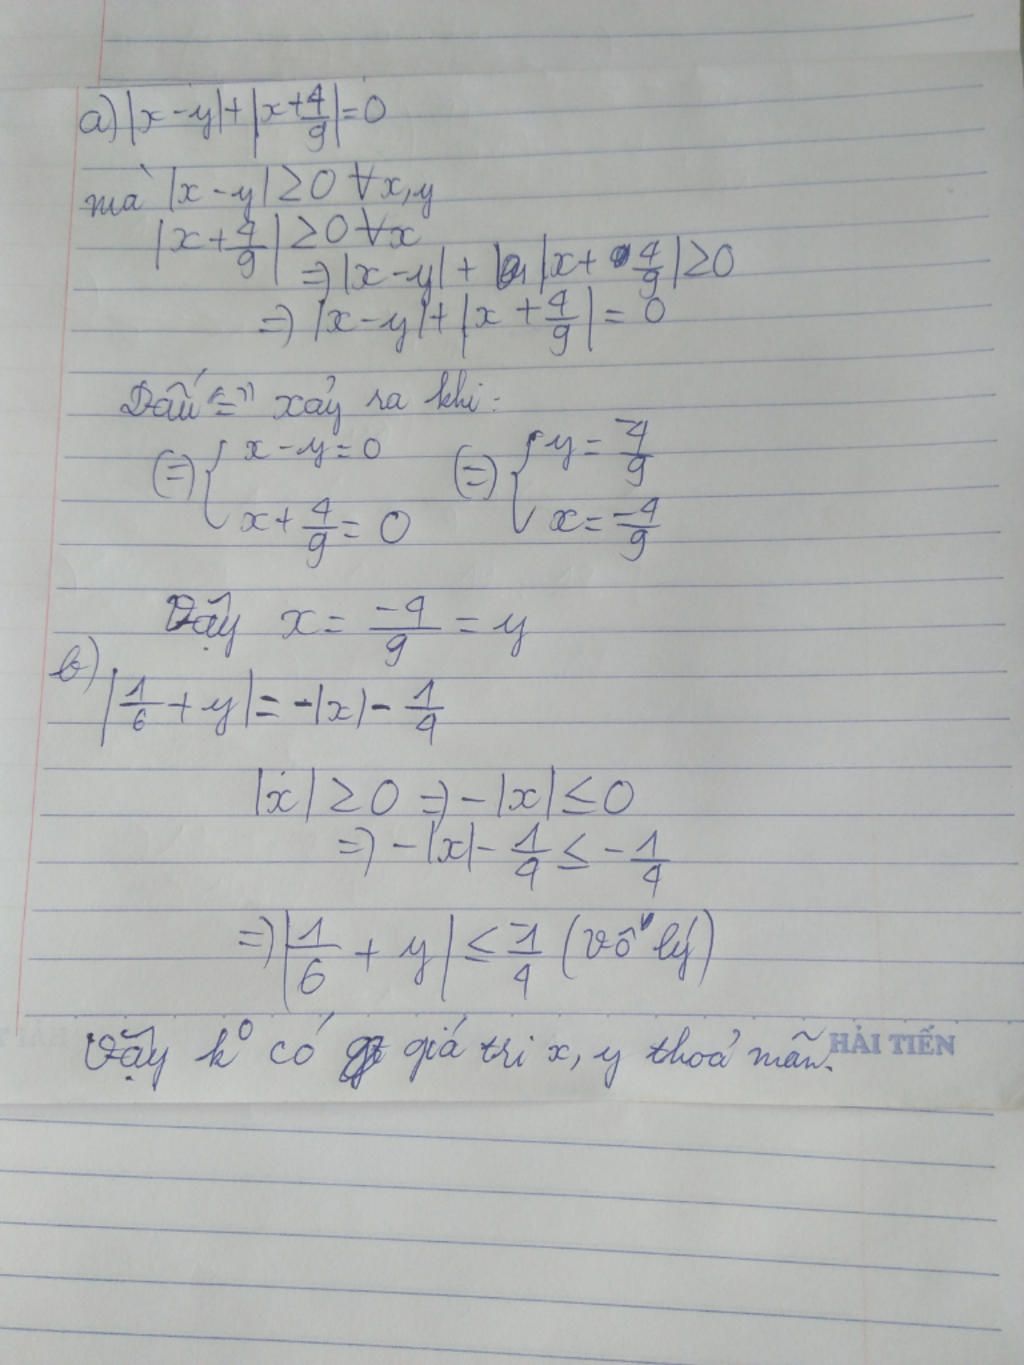 a) |x-y|+|x+4/9|=0
mà |x-y| ≥0 ∀x,y
|x+4/9| ≥0 ∀x
=> |x-y| + |x+ 4/9| ≥0
=> |x-y|+|x+4/9| = 0
Dấu "=" xảy ra khi:
(=) { x-y=0 (=) { y= -4/9
x+4/9=0 x= -4/9
Vậy x= -4/9 = y
b)
|1/6+y|= -|x|-1/4
|x| ≥0 => -|x| ≤0
=> -|x|-1/4 ≤ -1/4
=> |1/6+y| ≤ -1/4 (vô lý)
Vậy k⁰ có giá tri x, y thoả mãn.
HẢI TIẾN